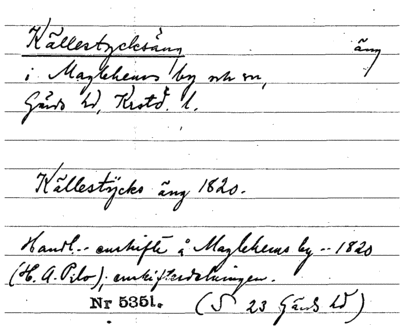 Källestycksäng äng
i Maglehems by och sn,
Gärds hd, Krstd. l.
Källestÿcks äng 1820.
Handl... enskifte å Maglehems by... 1820
(H. A. Pilo); enskiftesdelningen.
Nr 5351. (S 23 Gärds hd)